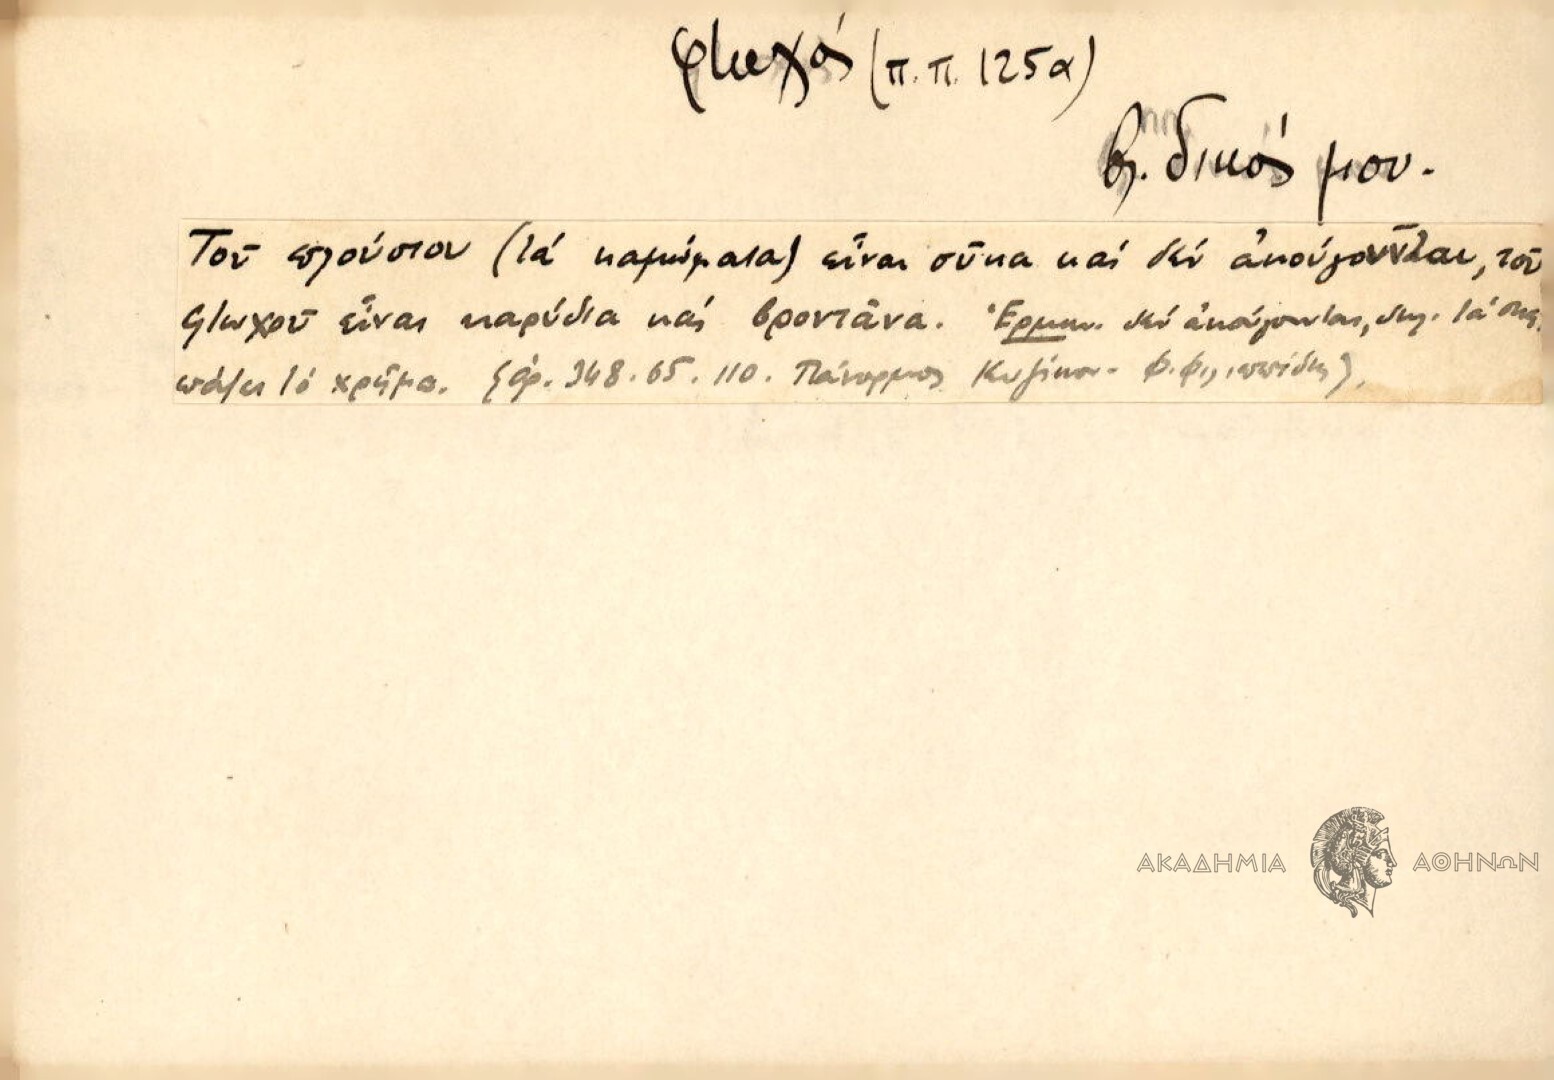 φτωχός (π.π. 125α)
βλ. δικός μου.
Τοῦ πλούσιου (τά καμώματα) εἶναι σῦκα καί δέν ἀκούγουνται, τοῦ
φτωχοῦ εἶναι καρύδια καί βροντᾶνε. Ἑρμην. δέν ἀκούγονται, δηλ. τά σκε-
πάζει τό χρῆμα. (ἀρ. 348. 65. 110. Πάνορμος Κυζίκου. Φ. Φιλιππίδης).
ΑΚΑΔΗΜΙΑ ΑΘΗΝΩΝ